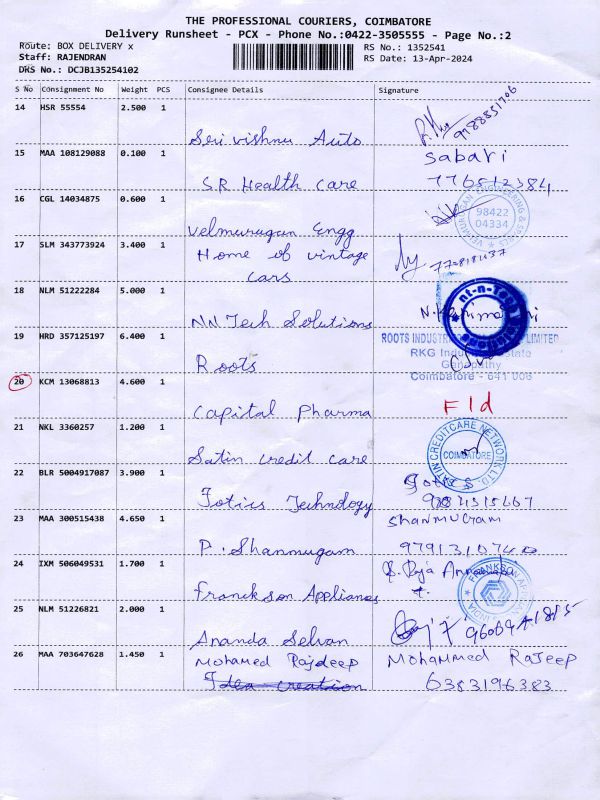 THE PROFESSIONAL COURIERS, COIMBATORE
Delivery Runsheet - PCX - Phone No.:0422-3505555 - Page No.:2
Route: BOX DELIVERY x
RS No.: 1352541
Staff: RAJENDRAN
RS Date: 13-Apr-2024
DRS No.: DCJB135254102
S No Consignment No Weight PCS Consignee Details Signature
14 HSR 55554 2.500 1
Sri vishnu Auto
15 MAA 108129088 0.100 1 Sabari
SR Health care
16 CGL 14034875 0.600 1
98422
04334
Velmurugan Engg
17 SLM 343773924 3.400 1 Home of vintage
cars
18 NLM 51222284 5.000 1
NN Tech Solutions
19 HRD 357125197 6.400 1
ROOTS INDUSTR LIMITED
Roots RKG Indu state
Ganapathy
Coimbatore - 641 006
20 KCM 13068813 4.600 1
Capital Pharma Fld
21 NKL 3360257 1.200 1
SATIN CREDITCARE NETWORK LTD.
COIMBATORE
Satin credit care
22 BLR 5004917087 3.900 1
Jotics Technology
23 MAA 300515438 4.650 1 Shanmugam
P. Shanmugam
24 IXM 506049531 1.700 1
Franckson Applianes
25 NLM 51226821 2.000 1
Ananda Selvan
26 MAA 703647628 1.450 1 Mohamed Rajdeep Mohammed Rajeep
Idea creation 6383196383